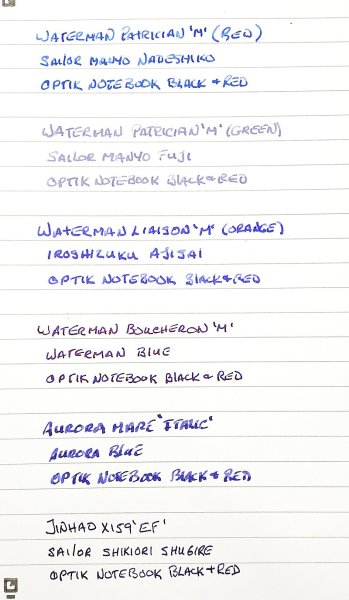 WATERMAN PATRICIAN 'M' (RED)
SAILOR MANYO NADESHIKO
OPTIK NOTEBOOK BLACK + RED
WATERMAN PATRICIAN 'M' (GREEN)
SAILOR MANYO FUJI
OPTIK NOTEBOOK BLACK + RED
WATERMAN LIAISON 'M' (ORANGE)
IROSHIZUKU AJISAI
OPTIK NOTEBOOK BLACK + RED
WATERMAN BOUCHERON 'M'
WATERMAN BLUE
OPTIK NOTEBOOK BLACK + RED
AURORA MARE 'ITALIC'
AURORA BLUE
OPTIK NOTEBOOK BLACK + RED
JINHAO X159 'EF'
SAILOR SHIKIORI SHUGIRE
OPTIK NOTEBOOK BLACK + RED